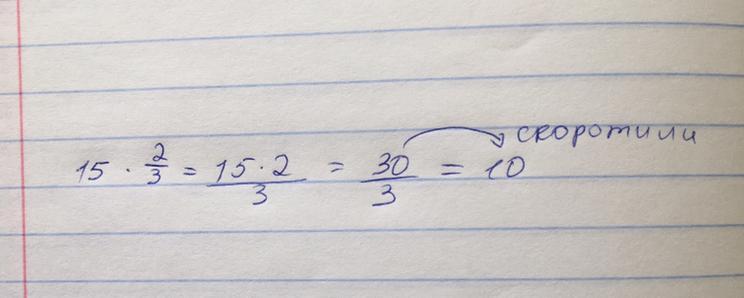 15 · 2/3 = 15·2/3 = 30/3 = 10 скоротили